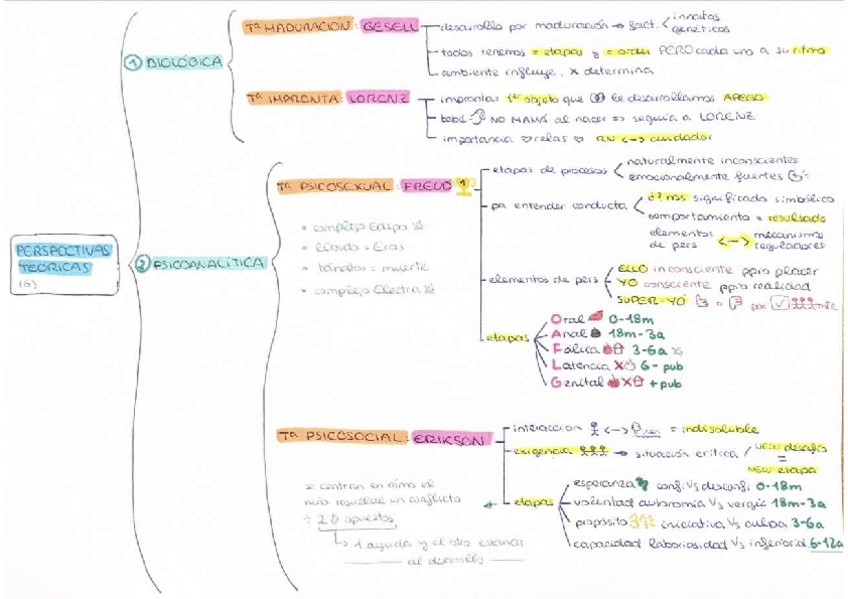 PERSPECTIVAS
TEÓRICAS
(6)
① BIOLÓGICA
Tª MADURACIÓN: GESELL
desarrollo por maduración → fact. innatos
genéticos
todos tenemos = etapas y = orden PERO cada uno a su ritmo
ambiente influye, x determina
Tª IMPRONTA: LORENZ
impronta: 1er objeto que le desarrollamos APEGO
bebé NO MAMÁ al nacer => seguía a LORENZ
importancia relas RN <-> cuidador
② PSICOANALÍTICA
Tª PSICOSEXUAL: FREUD 1
complejo Edipo
líbido = Eros
tánatos = muerte
complejo Electra
etapas de procesos
naturalmente inconscientes
emocionalmente fuertes
pa entender conducta
significado simbólico
comportamiento = resultado
elementos de pers <--> mecanismos reguladores
elementos de pers
ELLO inconsciente ppio placer
YO consciente ppio realidad
SUPER-YO
etapas
Oral 0-18m
Anal 18m-3a
Fálica 3-6a
Latencia X 6-pub
Genital +pub
Tª PSICOSOCIAL: ERIKSON
interacción <--> = indisoluble
exigencia → situación crítica / new desafío
=
new etapa
etapas
esperanza confi Vs desconfi 0-18m
voluntad autonomía Vs vergü 18m-3a
propósito iniciativa Vs culpa 3-6a
capacidad laboriosidad Vs inferiorid. 6-12a
se centran en cómo el
niño resuelve un conflicto
÷ 2 opuestos
↳ 1 ayuda y el otro estanca
al dsarrollo